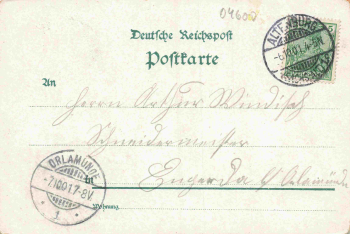 04600
Deutsche Reichspost
Postkarte
ALTENBURG
-6.10.01.4-5N
An
Herrn Arthur Windisch
Schneidermeister
in Engerda b/ Orlamünde
ORLAMÜNDE
-7.10.01.7-8V.
* 1 *
Wohnung